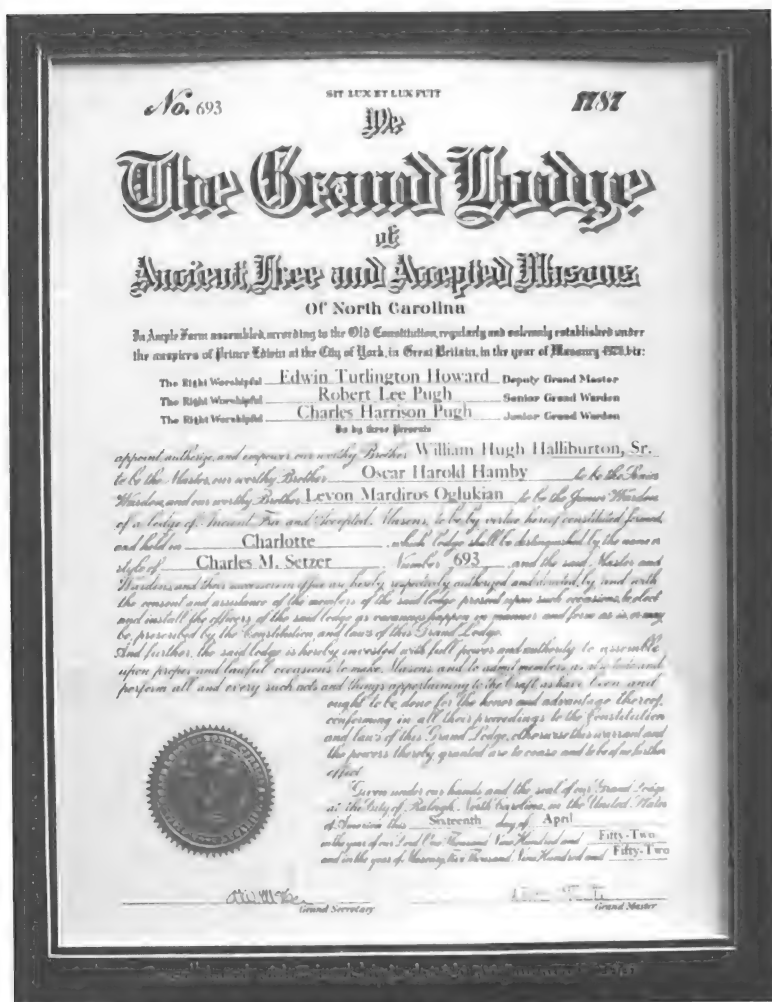 No. 693
SIT LUX ET LUX FUIT
1787
We
The Grand Lodge
of
Ancient, Free and Accepted Masons
Of North Carolina
In Ample Form assembled, according to the Old Constitution, regularly and solemnly established under
the auspices of Prince Edwin at the City of York, in Great Britain, in the year of Masonry 4926, viz:
The Right Worshipful Edwin Turlington Howard Deputy Grand Master
The Right Worshipful Robert Lee Pugh Senior Grand Warden
The Right Worshipful Charles Harrison Pugh Junior Grand Warden
Do by these Presents
appoint, authorize, and empower our worthy Brother William Hugh Halliburton, Sr.
to be the Master, our worthy Brother Oscar Harold Hamby to be the Senior
Warden, and our worthy Brother Levon Mardiros Oglukian to be the Junior Warden
of a Lodge of Ancient Free and Accepted Masons, to be by virtue hereof constituted, formed,
and held in Charlotte which Lodge shall be distinguished by the name or
style of Charles M. Setzer Number 693 and the said Master and
Wardens and their successors in office are hereby respectively authorized and directed, by and with
the consent and assistance of the members of the said lodge present upon such occasions, to elect
and install the officers of the said lodge as vacancies happen in manner and form as is, or may
be, prescribed by the Constitution and laws of this Grand Lodge.
And further, the said lodge is hereby invested with full power and authority to assemble
upon proper and lawful occasions to make Masons and to admit members as also to do and
perform all and every such acts and things appertaining to the Craft as have been and
ought to be done for the honor and advantage thereof,
conforming in all their proceedings to the Constitution
and laws of this Grand Lodge, otherwise this warrant and
the powers thereby granted are to cease and to be of no further
effect.
Given under our hands and the seal of our Grand Lodge
at the City of Raleigh, North Carolina, in the United States
of America this Sixteenth day of April
in the year of our Lord One Thousand Nine Hundred and Fifty-Two
and in the year of Masonry, Five Thousand Nine Hundred and Fifty-Two
Grand Secretary
Grand Master